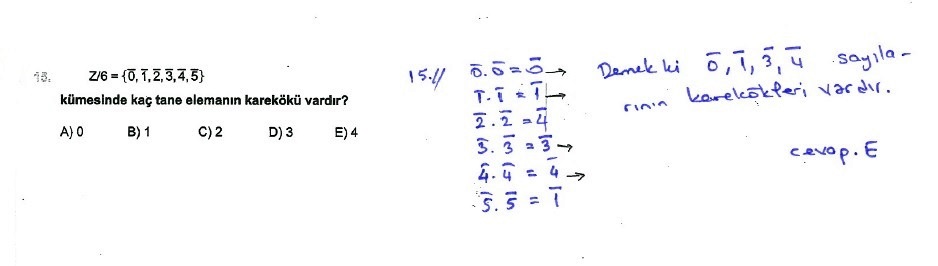 15. Z/6 = {0̅, 1̅, 2̅, 3̅, 4̅, 5̅}
kümesinde kaç tane elemanın karekökü vardır?
A) 0 B) 1 C) 2 D) 3 E) 4
15.// 0̅.0̅ = 0̅ →
1̅.1̅ = 1̅ →
2̅.2̅ = 4̅
3̅.3̅ = 3̅ →
4̅.4̅ = 4̅ →
5̅.5̅ = 1̅
Demek ki 0̅, 1̅, 3̅, 4̅ sayıla-
rının karekökleri vardır.
cevap. E